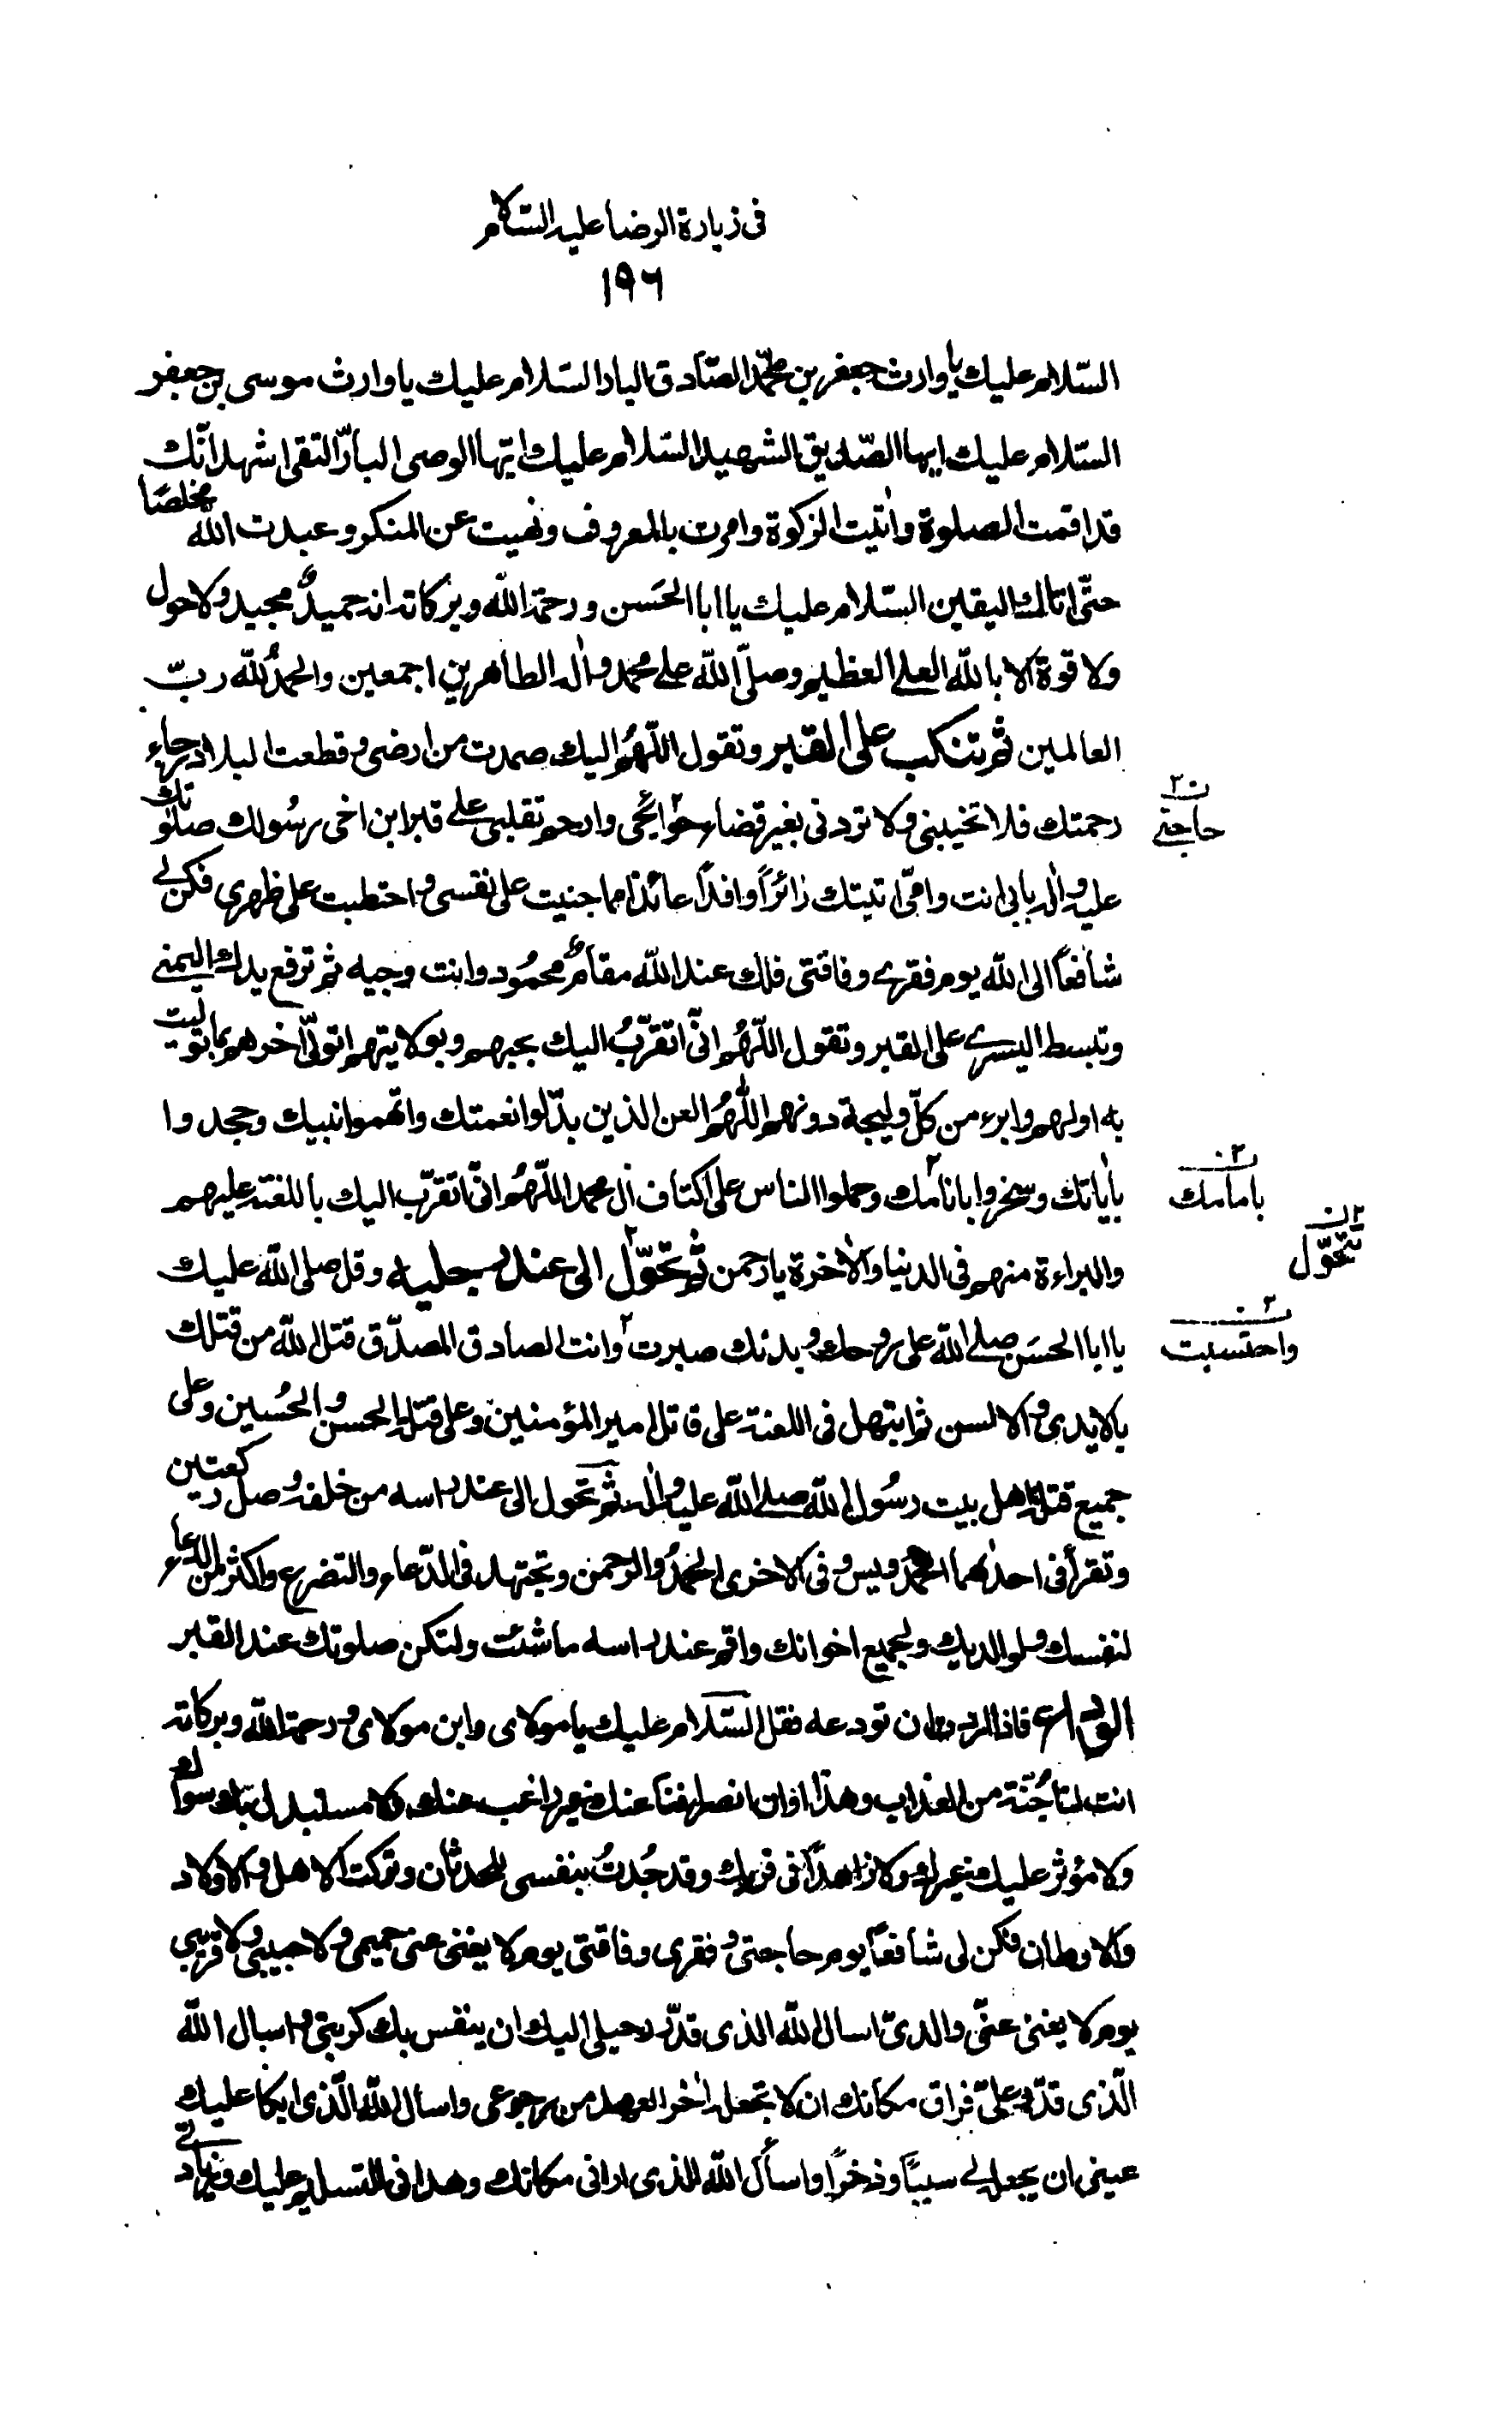 فى زيارة الرضا عليه السّلام
١٩٦
السّلام عليك يا وارث جعفر بن محمّد الصّادق البار السّلام عليك يا وارث موسى بن جعفر
السّلام عليك ايها الصّديق الشهيد السّلام عليك ايّها الوصى البارّ التقى اشهد انّك
قد اقمت الصلوة واتيت الزكوة وامرت بالمعروف ونهيت عن المنكر وعبدت الله مخلصًا
حتّى اتاك اليقين السّلام عليك يا ابا الحَسن ورحمة الله وبركاته انه حميدٌ مجيد ولا حول
ولا قوة الا بالله العلى العظيم وصلّى الله على محمد واله الطاهرين اجمعين والحمدُ لله ربّ
العالمين ثم تنكب على القبر وتقول اللّهُم اليك صمدت من ارضى وقطعت البلاد رجاء
رحمتك فلا تخيبنى ولا تردنى بغير قضاء حوائجى وارحم تقلبى على قبر ابن اخى رسُولك صلواتك
عليه واله بابى انت وامّى اتيتك زائرًا وافدًا عائذا مما جنيت على نفسى واحتطبت على ظهرى فكن لى
شافعًا الى الله يوم فقرى وفاقتى فلك عند الله مقامٌ محمُود وانت وجيه ثم ترفع يدك اليمنى
وتبسط اليسرى على القبر وتقول اللّهُم انّى اتقرّبُ اليك بحبهم وبولايتهم اتولّى اخرهم بما توليت
به اولهم وابرء من كلّ وليجة دونهم اللّهُم العن الذين بدّلوا نعمتك واتهموا نبيك وجحدوا
باياتك وسخروا بانامك وحملوا الناس على اكتاف ال محمد اللّهُم انّى اتقرّب اليك باللغنة عليهم
والبراءة منهم فى الدنيا والاخرة يا رحمن ثم تحوّل الى عند رجليه وقل صلى الله عليك
يا ابا الحسَن صلى الله على روحك وبدنك صبرت وانت الصادق المصدّق قتل الله من قتلك
بالايدى والالسن ثم ابتهل فى اللعنة على قاتل امير المؤمنين وعلى قتلة الحسن والحُسين وعلى
جميع قتلة اهل بيت رسُول الله صلى الله عليه واله ثم تحول الى عند راسه من خلفه وصل ركعتين
وتقرأ فى احدٰهما الحمد ويس وفى الاخرى الحمدُ والرحمن وتجتهد فى الدّعاء والتضرع واكثر من الدعاء
لنفسك ولوالديك ولجميع اخوانك واقم عند راسه ما شئت ولتكن صلوتك عند القبر
الوداع فاذا اردت ان تودعه فقل السّلام عليك يا مولاى وابن مولاى ورحمة الله وبركاته
انت لنا جُنّة من العذاب وهذا اوان انصرافنا عنك غير راغب عنك ولا مستبدل بك سواك
ولا مؤثر عليك غيرك ولا زاهدًا فى قربك وقد جُدتُ بنفسى للحدثان وتركت الاهل والاولاد
والاوطان فكن لى شافعًا يوم حاجتى وفقرى وفاقتى يوم لا يغنى عنى حميمى ولا حبيبى ولا قريبى
يوم لا يغنى عنّى والدىّ اسال الله الذى قدّر رحيلى اليك ان ينفس بك كربتى واسال الله
الّذى قدّر علىّ فراق مكانك ان لا تجعله اخر العهد من رجوعى واسال الله الّذى ابكا عليك
عينى ان يجعله لى سببًا وذخرًا واسأل الله الذى ارانى مكانك وهدانى للتسليم عليك وزيارتى
ن٢
حاجتى
ن٢
بامامك
ن٢
تتحوّل
ن٢
واحتسبت